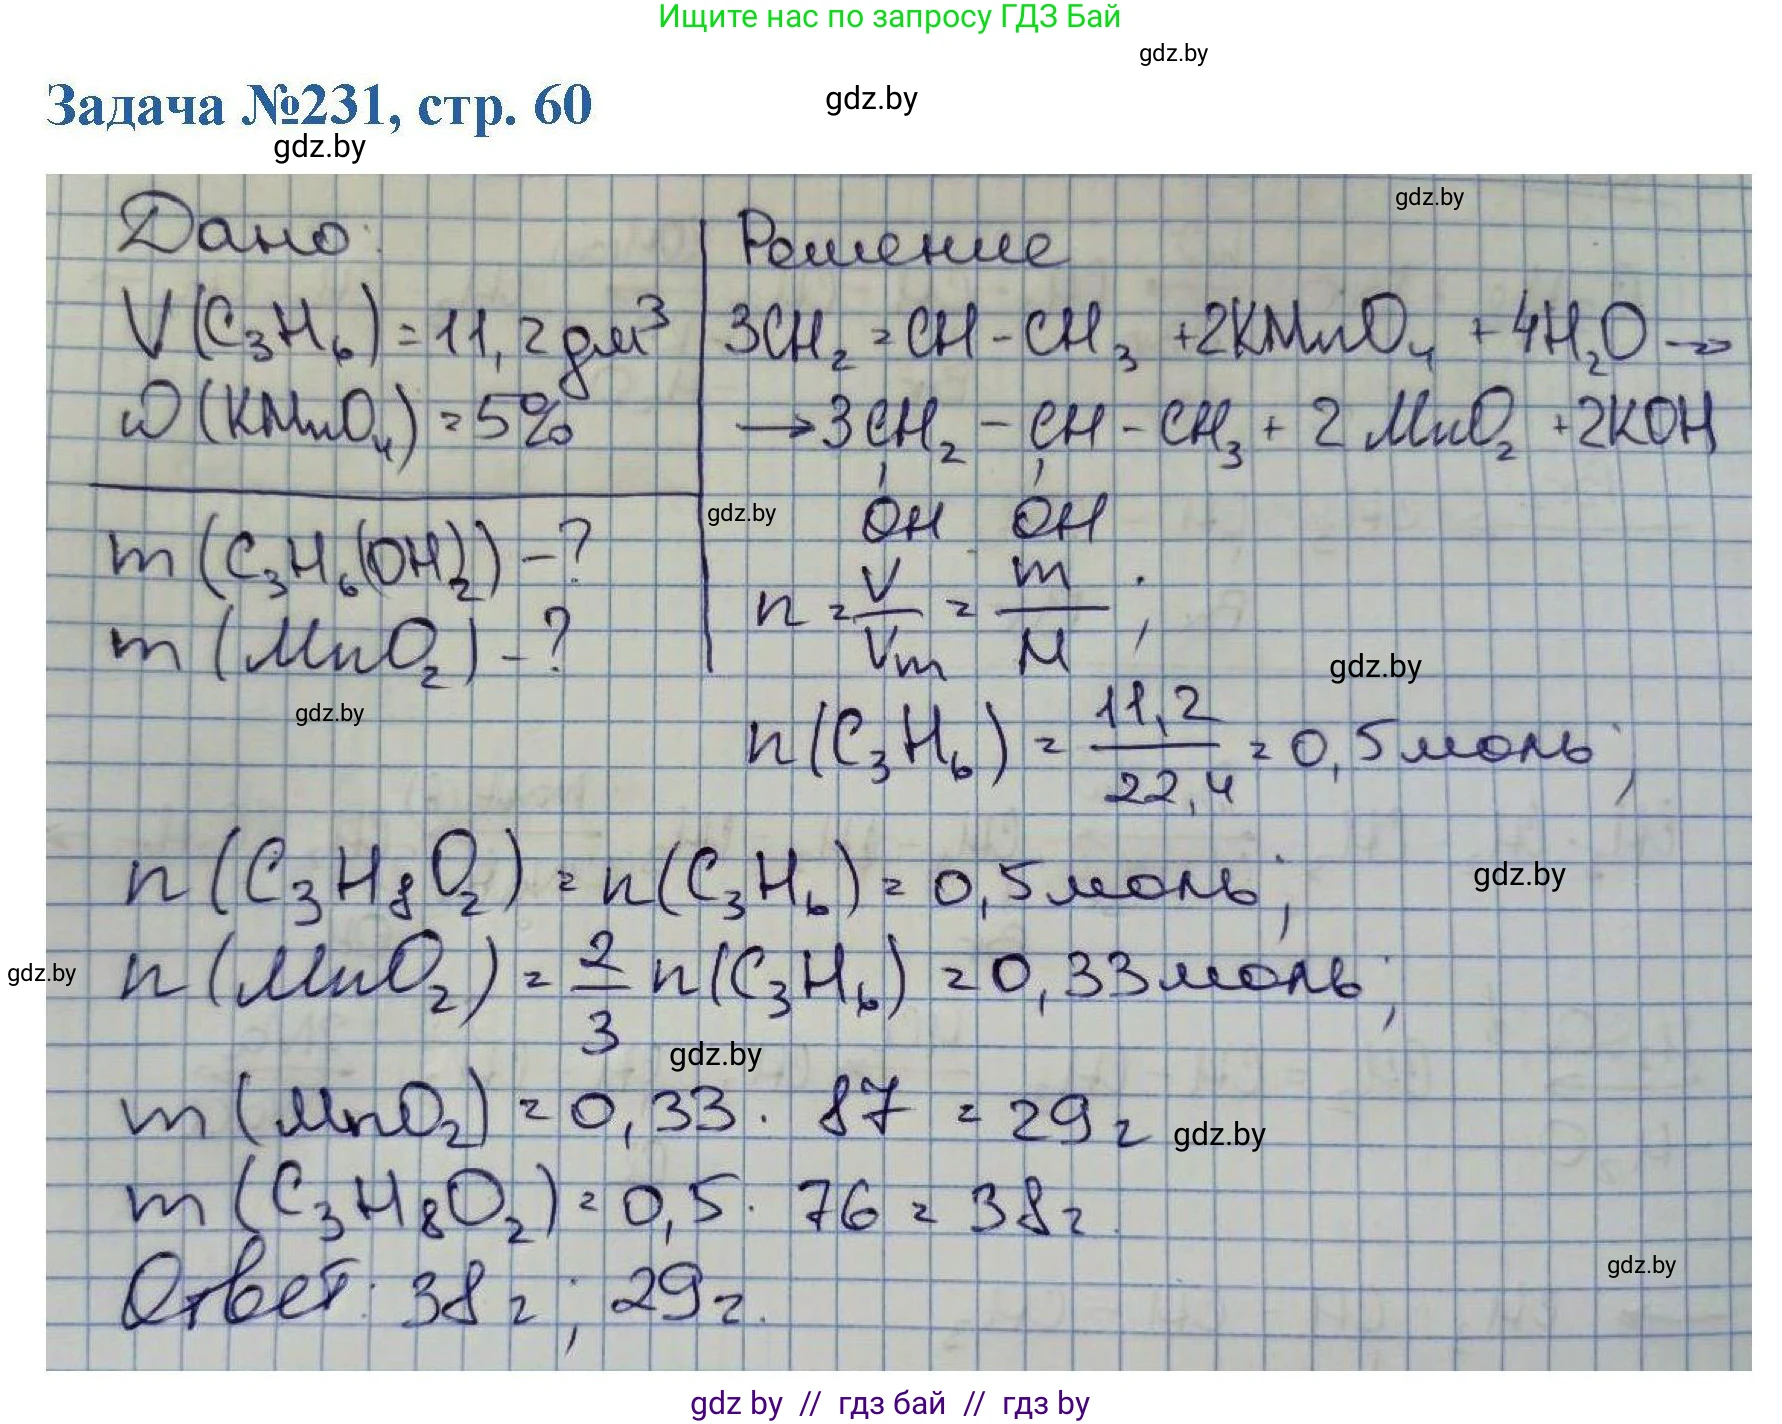 Ищите нас по запросу ГДЗ Бай
gdz.by
Задача №231, стр. 60
gdz.by
gdz.by
gdz.by
Дано:
V(C₃H₆) = 11,2 дм³
ω(KMnO₄) = 5%
m(C₃H₆(OH)₂) - ?
m(MnO₂) - ?
gdz.by
Решение
3CH₂=CH-CH₃ +2KMnO₄ +4H₂O →
→ 3CH₂ - CH - CH₃ + 2MnO₂ +2KOH
gdz.by
OH OH
n = V/Vm = m/M ;
gdz.by
n(C₃H₆) = 11,2/22,4 = 0,5 моль;
n(C₃H₈O₂) = n(C₃H₆) = 0,5 моль;
gdz.by
gdz.by
n(MnO₂) = 2/3 n(C₃H₆) = 0,33 моль;
gdz.by
m(MnO₂) = 0,33 · 87 = 29 г
gdz.by
m(C₃H₈O₂) = 0,5 · 76 = 38 г.
gdz.by
Ответ: 38 г; 29 г.
gdz by // гдз бай // гдз by